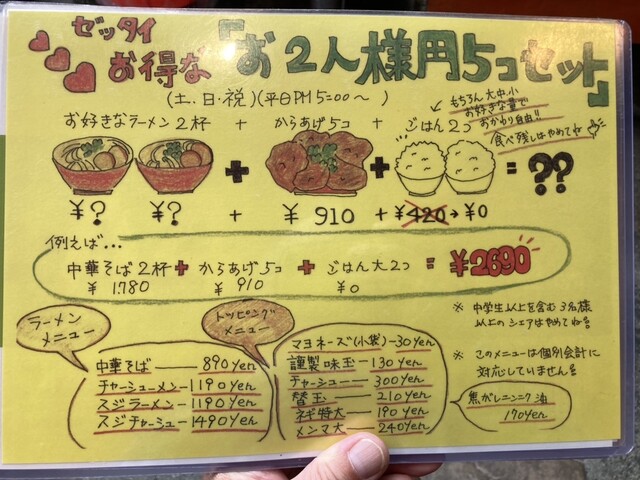 ゼッタイ
お得な
「お2人様用5コセット」
(土、日・祝)(平日PM5:00～ )
もちろん大中小
お好きな量で
おかわり自由!!
食べ残しはやめてネ
お好きなラーメン2杯 + からあげ5コ + ごはん2コ
+ + = ??
¥? ¥? + ¥ 910 + ¥420→¥0
例えば…
中華そば2杯 + からあげ5コ + ごはん大2コ = ¥2690
¥ 1780 ¥ 910 ¥0
ラーメン
メニュー
中華そば — 890yen
チャーシューメン — 1190yen
スジラーメン — 1190yen
スジチャーシュー — 1490yen
トッピング
メニュー
マヨネーズ(小袋) — 30yen
謹製味玉 — 130yen
チャーシュー — 300yen
替玉 — 210yen
ネギ特大 — 190yen
メンマ大 — 240yen
※ 中学生以上を含む3名様
以上のシェアはやめてね
※ このメニューは個別会計に
対応していません
焦がしニンニク油
170yen